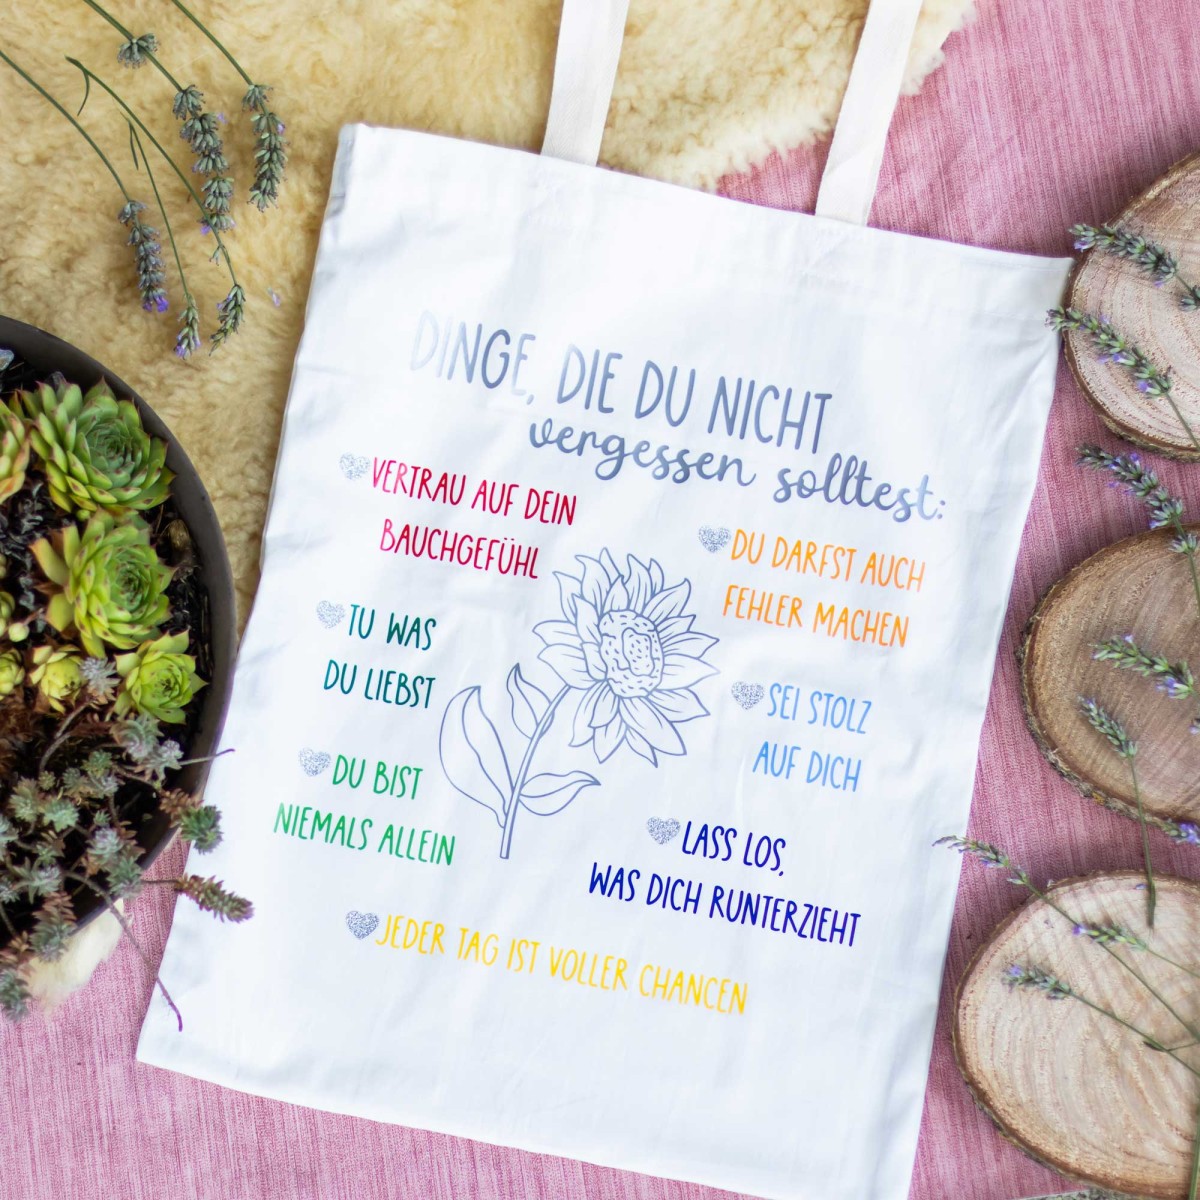 DINGE, DIE DU NICHT
vergessen solltest:
VERTRAU AUF DEIN
BAUCHGEFÜHL
DU DARFST AUCH
FEHLER MACHEN
TU WAS
DU LIEBST
SEI STOLZ
AUF DICH
DU BIST
NIEMALS ALLEIN
LASS LOS,
WAS DICH RUNTERZIEHT
JEDER TAG IST VOLLER CHANCEN